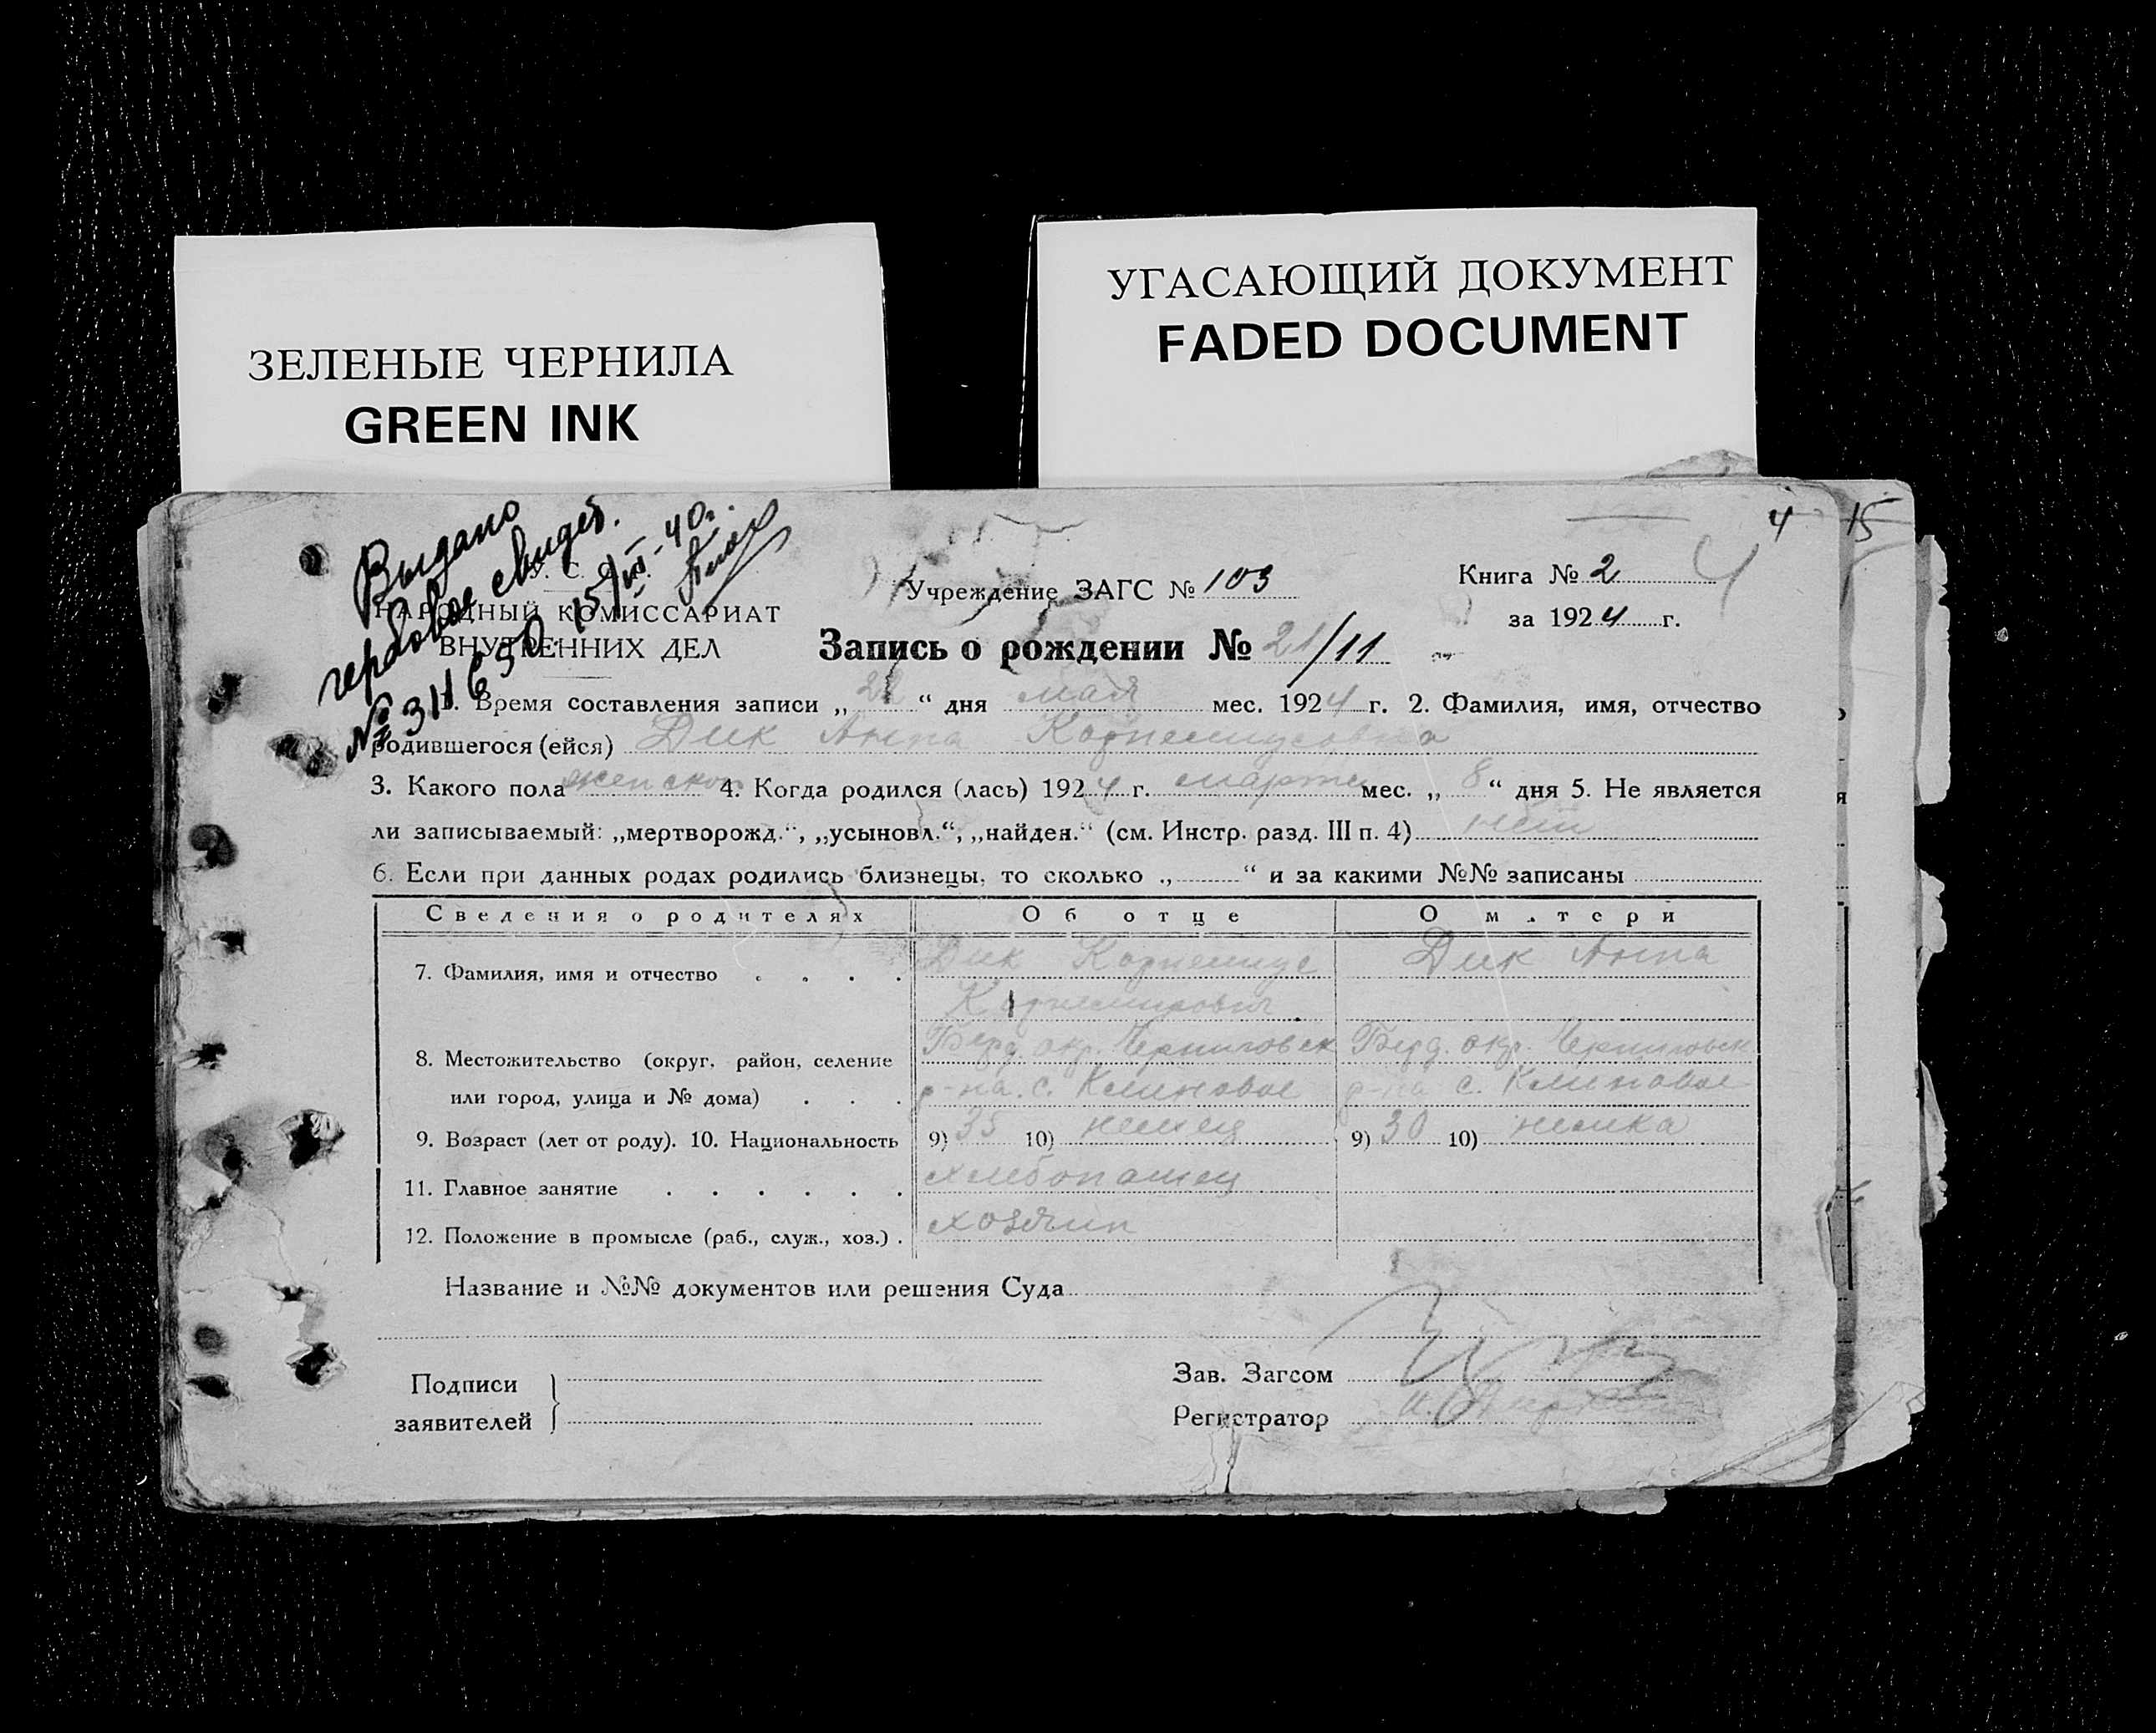 ЗЕЛЕНЫЕ ЧЕРНИЛА
GREEN INK
УГАСАЮЩИЙ ДОКУМЕНТ
FADED DOCUMENT
4 15
Выдано
гербовое свидет.
15/VII-40г.
У. С.
НАРОДНЫЙ КОМИССАРИАТ
ВНУТРЕННИХ ДЕЛ
Учреждение ЗАГС № 103
Книга № 2 4
за 1924 г.
Запись о рождении № 21/11
1. Время составления записи „ “ дня мая мес. 1924 г. 2. Фамилия, имя, отчество
родившегося (ейся) Дик Анна Корнелиусовна
3. Какого пола женского 4. Когда родился (лась) 1924 г. марта мес. „ 8 “ дня 5. Не является
ли записываемый: „мертворожд.“, „усыновл.“, „найден.“ (см. Инстр. разд. III п. 4) нет
6. Если при данных родах родились близнецы, то сколько „ “ и за какими №№ записаны
Сведения о родителях Об отце О м.тери
7. Фамилия, имя и отчество . . . . Дик Корнелиус Дик Анна
Корнелиусович
8. Местожительство (округ, район, селение Берд. окр. Черниговск Берд. окр. Черниговск
или город, улица и № дома) . . . р-на. с. Клиновое р-на с. Клиновое
9. Возраст (лет от роду). 10. Национальность 9) 35 10) немец 9) 30 10) немка
11. Главное занятие . . . . . . хлебопашец
12. Положение в промысле (раб., служ., хоз.) . хозяин
Название и №№ документов или решения Суда
Подписи
заявителей
Зав. Загсом
Регистратор